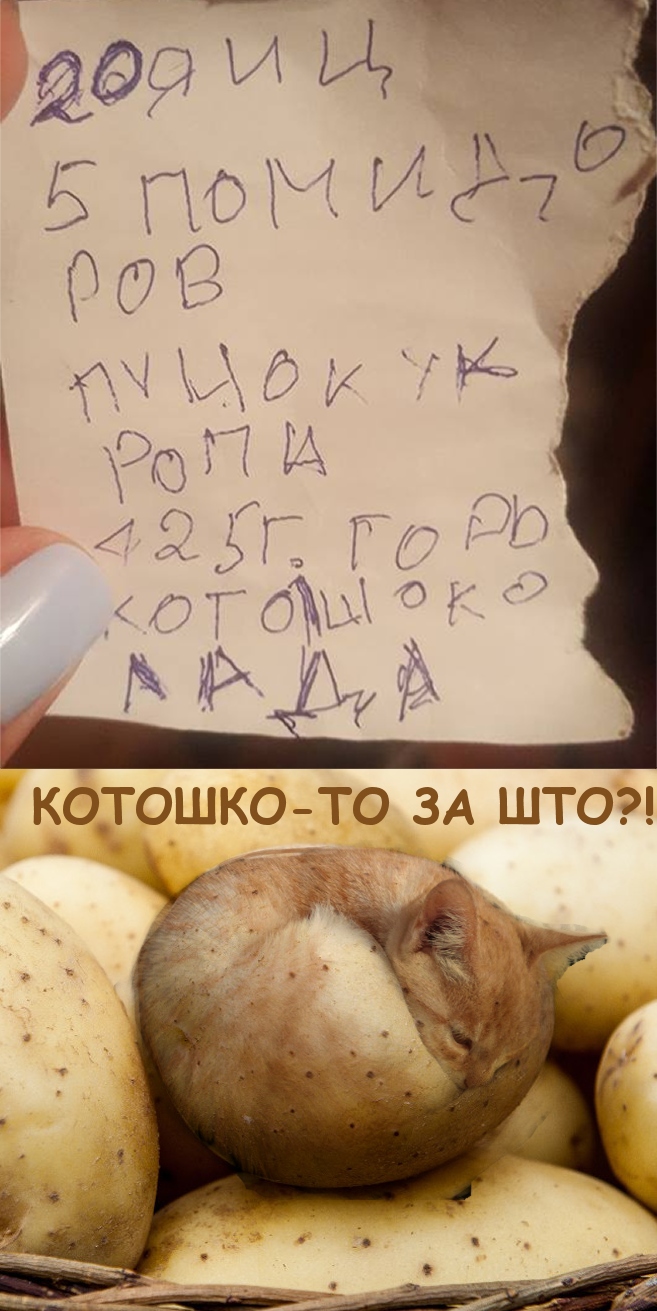 20 ЯИЦ
5 ПОМИДО
РОВ
ПУЦОК УК
РОПА
425Г. ГОРЬ
КОТОШОКО
ЛАДА
КОТОШКО-ТО ЗА ШТО?!